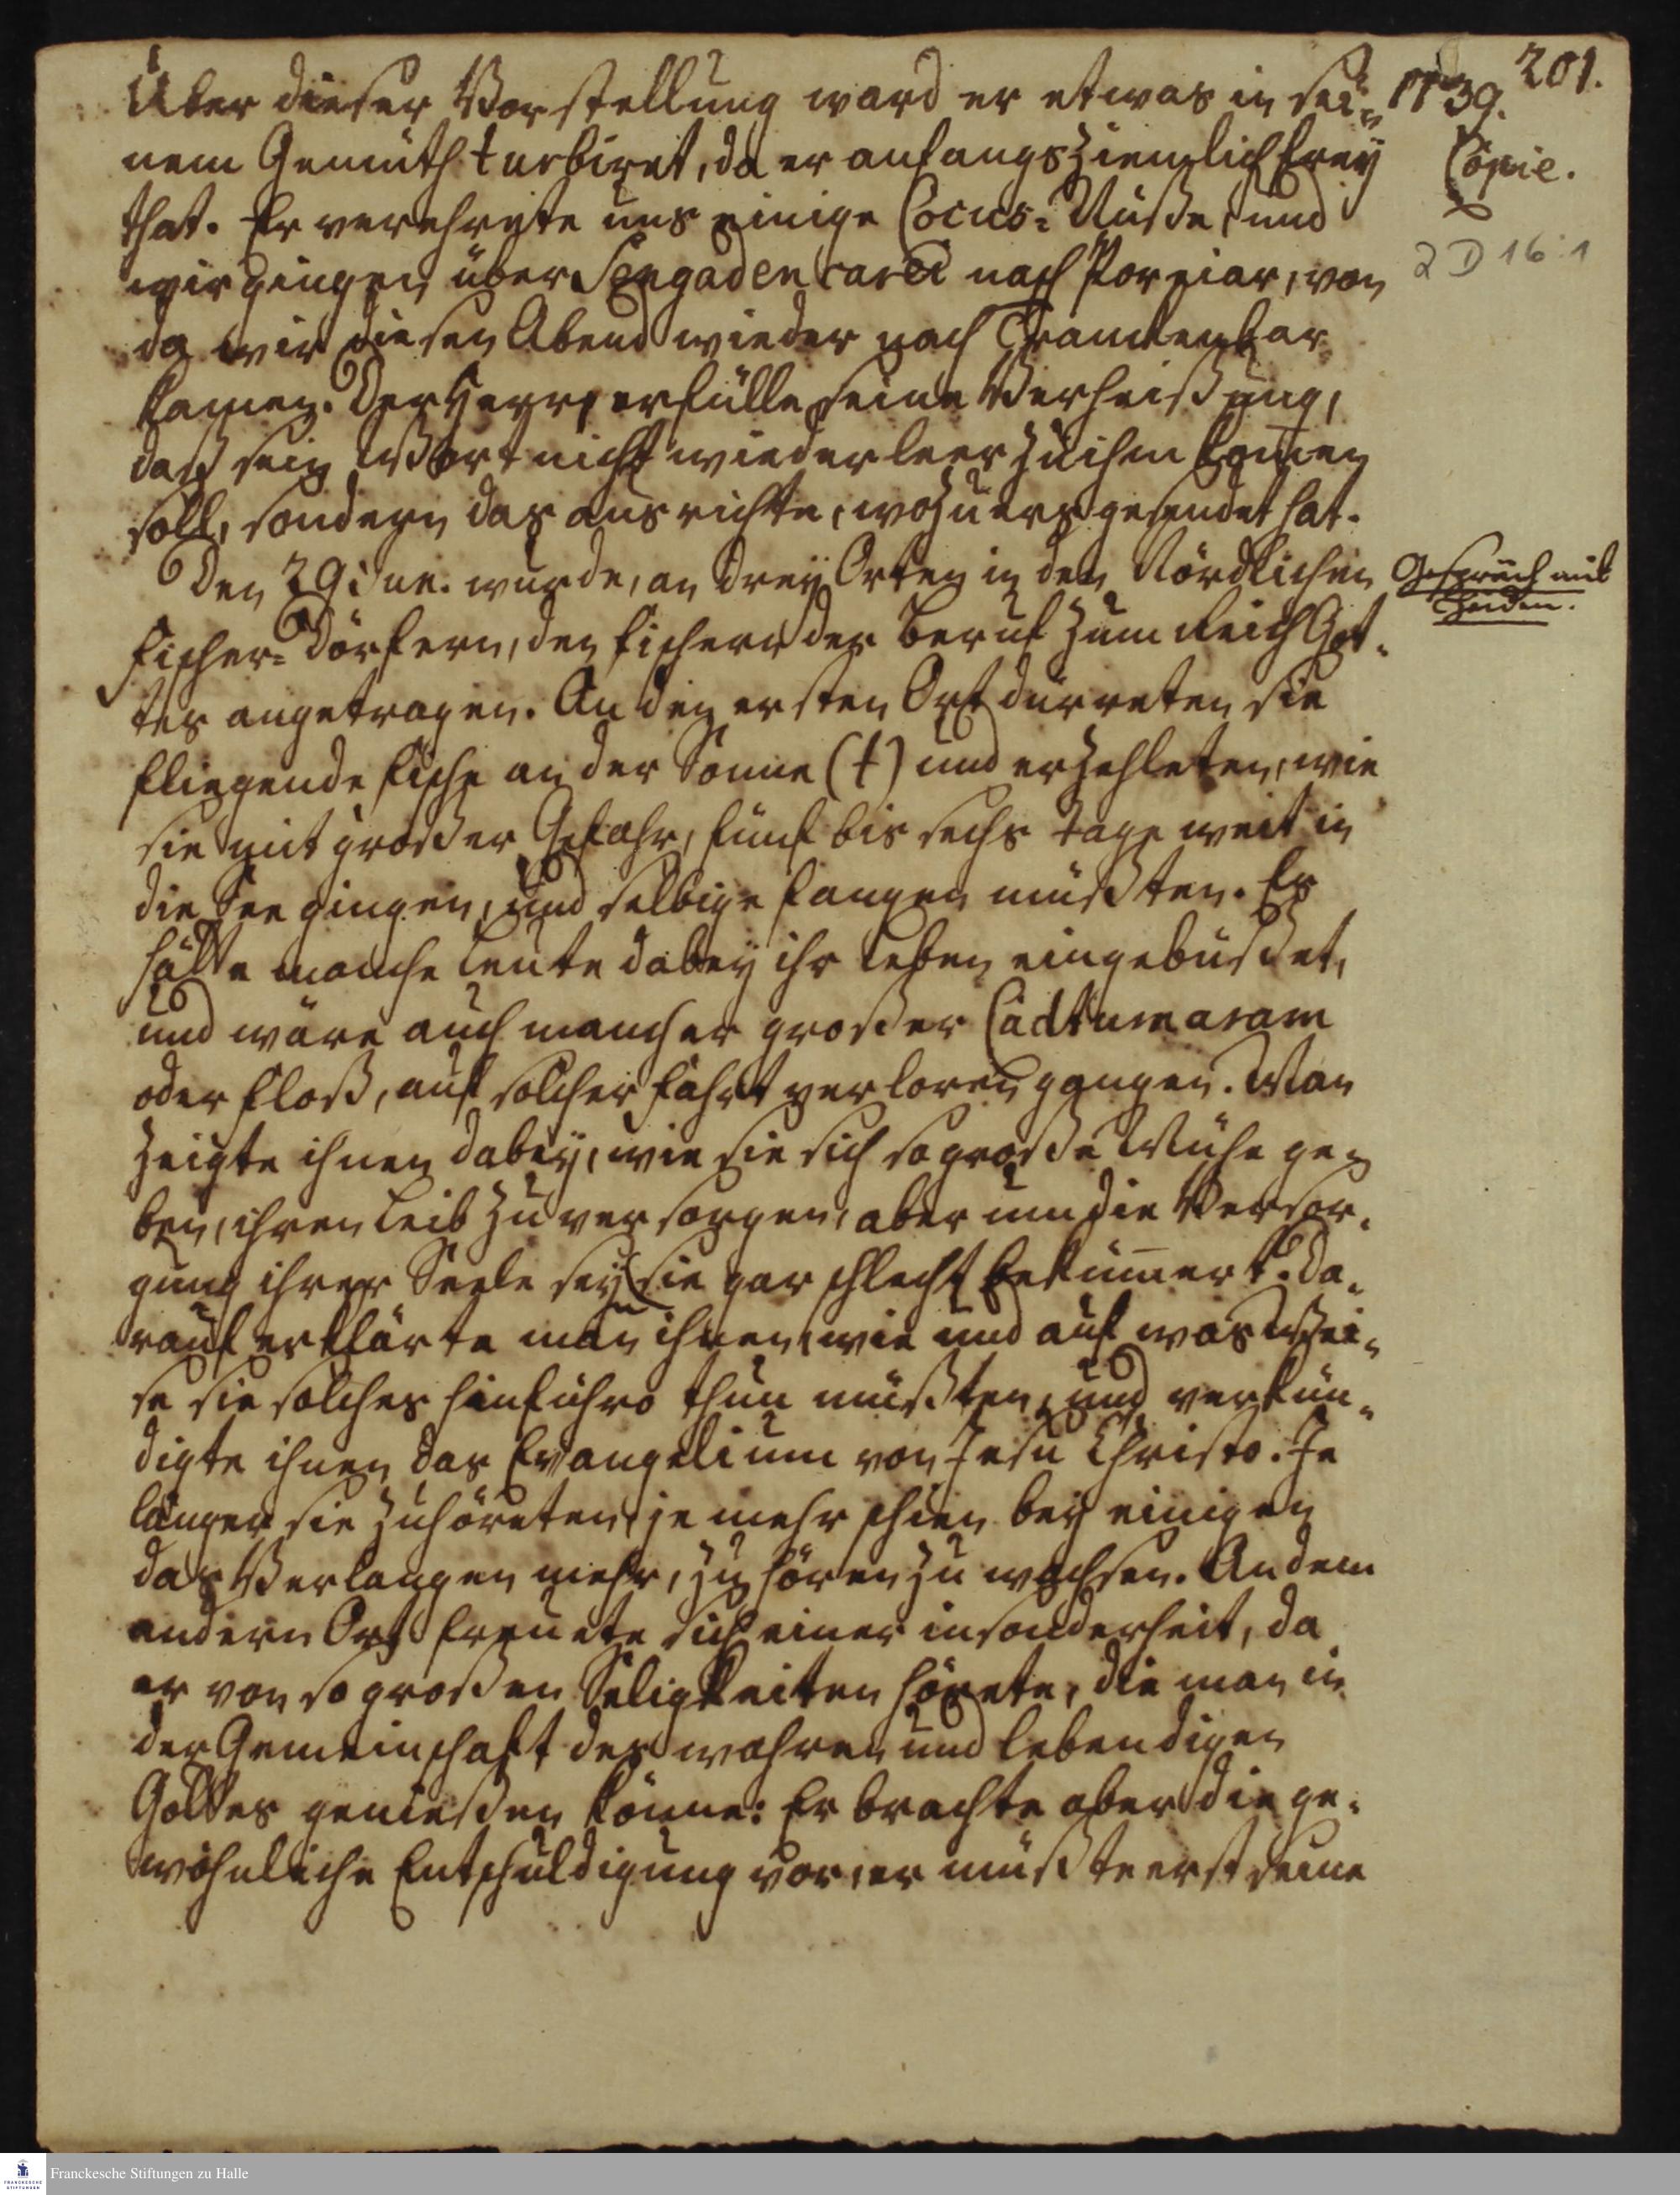 201.
1739.
Copie.
2 D 16:1
Über dieser Vorstellung ward er etwas in sei-
nem Gemüth turbiret, da er anfangs ziemlich frey
that. Er verehrete uns einige Cocus-Nüße, und
wir gingen über Sengadencarei nach Poreiar, von
da wir diesen Abend wieder nach Trankenbar
kamen. Der Herr erfülle seine Verheißung,
daß sein Wort nicht wieder leer zu ihm kom̅en
soll, sondern das ausrichte, wozu ers gesendet hat.
Den 29 Jun. wurde, an drey Orten in den Nördlichen
Fischer-Dörfern, den Fischern der Beruf zum Reich Got-
tes angetragen. An den ersten Ort dürreten sie
fliegende Fische an der Sonne (†) und erzehleten, wie
sie mit großer Gefahr, fünf bis sechs Tage weit in
die See gingen, und selbige fangen müßten. Es
hätte manche Leute dabey ihr Leben eingebüßet,
und wäre auch mancher großer Cadtumaram
oder Floß, auf solcher Fahrt verloren gangen. Man
zeigte ihnen dabey, wie sie sich so große Mühe ge-
ben, ihren Leib zu versorgen, aber um die Versor-
gung ihrer Seele seyn sie gar schlecht bekümmert. Da-
rauf erklärte man ihnen, wie und auf was Wei-
se sie solches hinführo thun müßten, und verkün-
digte ihnen das Evangelium von Jesu Christo. Je
länger sie zuhöreten, je mehr schien bey einigen
das Verlangen mehr, zu hören zu wachsen. An dem
andern Ort freuete sich einer insonderheit, da
er von so großen Seligkeiten hörete, die man in
der Gemeinschaft des wahren und lebendigen
Gottes genießen könne: Er brachte aber die ge-
wöhnliche Entschuldigung vor, er müßte erst seine
Gespräch mit
Heiden.
Franckesche Stiftungen zu Halle
FRANCKESCHE
STIFTUNGEN